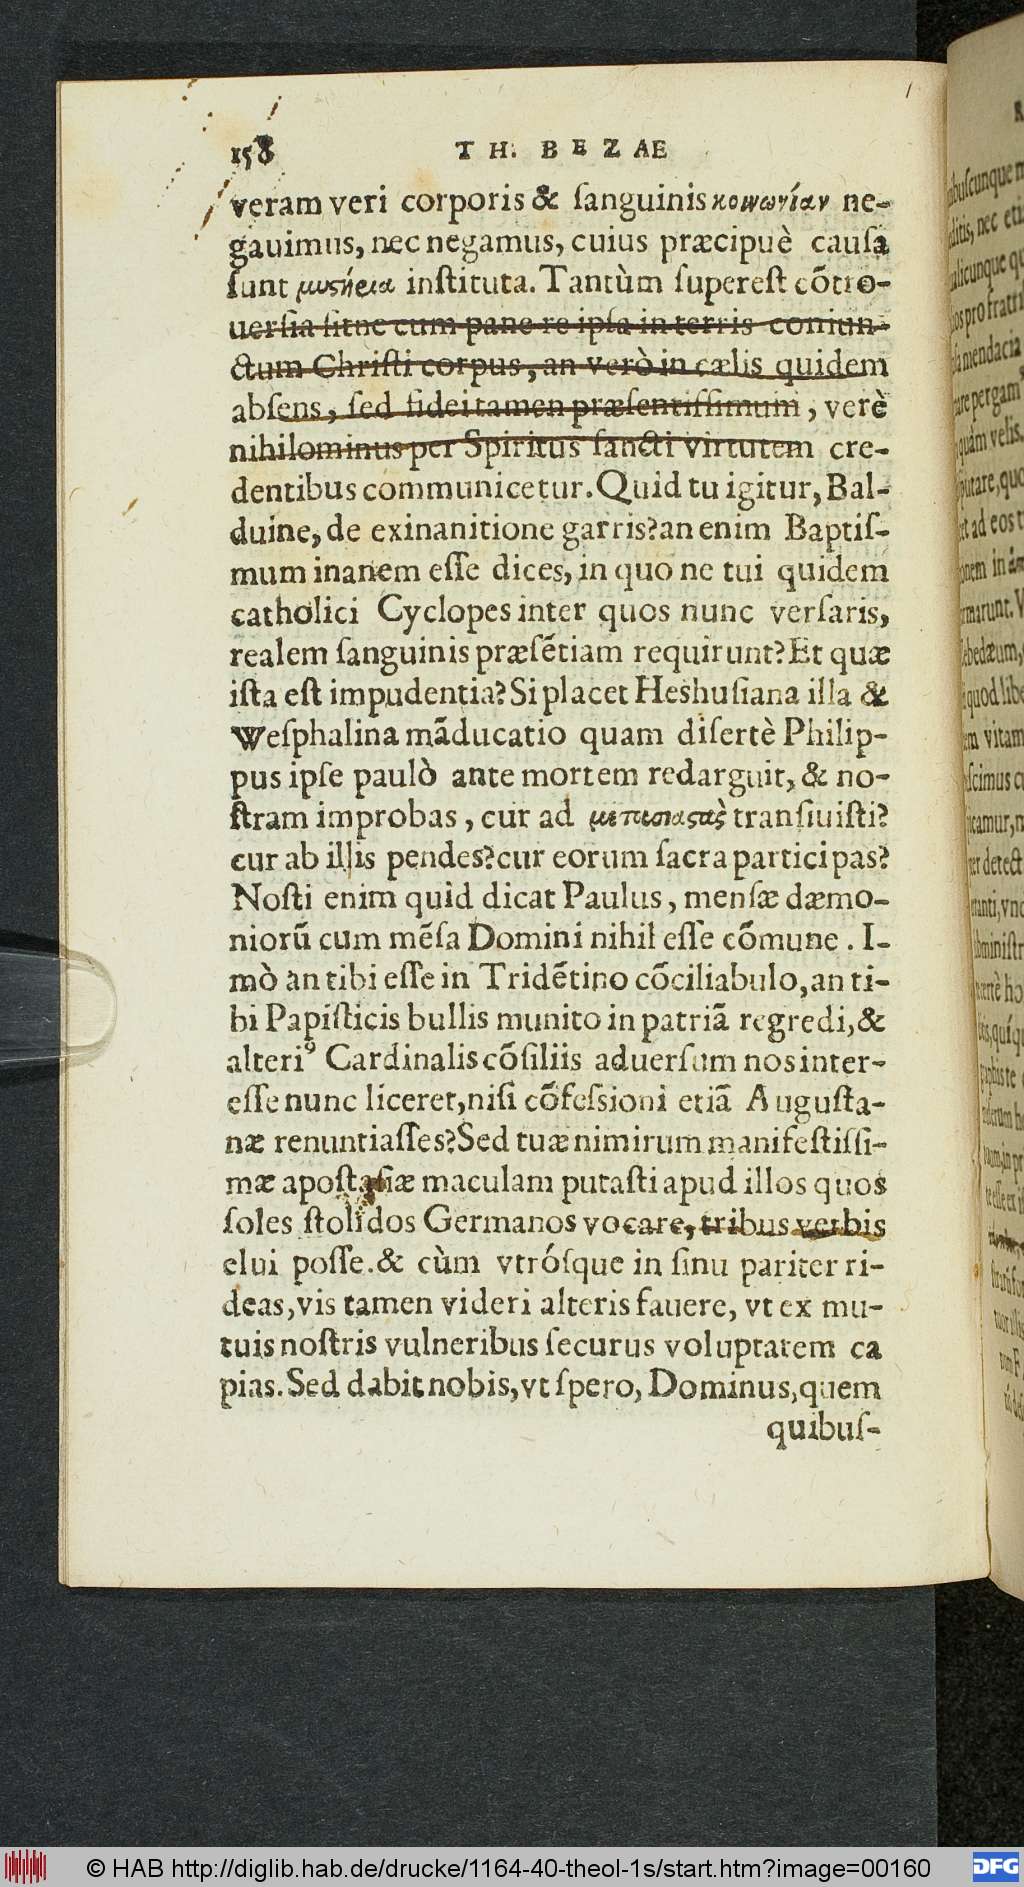 158 TH. BEZAE
veram veri corporis & ſanguinis κοινωνίαν ne-
gauimus, nec negamus, cuius præcipuè cauſa
ſunt μυστήρια inſtituta. Tantùm ſupereſt cõtro-
uerſia ſitne cum pane re ipſa in terris coniun-
ctum Chriſti corpus, an verò in cælis quidem
abſens, ſed fidei tamen præſentiſſimum, verè
nihilominus per Spiritus ſancti virtutem cre-
dentibus communicetur. Quid tu igitur, Bal-
duine, de exinanitione garris? an enim Baptiſ-
mum inanem eſſe dices, in quo ne tui quidem
catholici Cyclopes inter quos nunc verſaris,
realem ſanguinis præſẽtiam requirunt? Et quæ
iſta eſt impudentia? Si placet Heshuſiana illa &
Weſphalina mãducatio quam diſertè Philip-
pus ipſe paulò ante mortem redarguit, & no-
ſtram improbas, cur ad transiuiſti?
cur ab illis pendes? cur eorum ſacra participas?
Noſti enim quid dicat Paulus, menſæ dæmo-
niorũ cum mẽſa Domini nihil eſſe cõmune. I-
mò an tibi eſſe in Tridẽtino cõciliabulo, an ti-
bi Papiſticis bullis munito in patriã regredi, &
alteriꝰ Cardinalis cõſiliis aduerſum nos inter-
eſſe nunc liceret, niſi cõfeſsioni etiã Auguſta-
næ renuntiaſſes? Sed tuæ nimirum manifeſtiſſi-
mæ apoſtaſiæ maculam putaſti apud illos quos
ſoles ſtolidos Germanos vocare, tribus verbis
elui poſſe. & cùm vtróſque in ſinu pariter ri-
deas, vis tamen videri alteris fauere, vt ex mu-
tuis noſtris vulneribus ſecurus voluptatem ca
pias. Sed dabit nobis, vt ſpero, Dominus, quem
quibuſ-
© HAB http://diglib.hab.de/drucke/1164-40-theol-1s/start.htm?image=00160
DFG